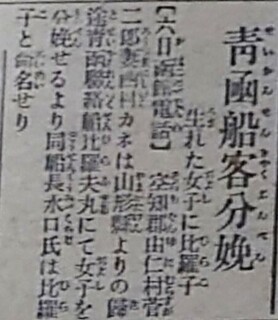 靑函船客分娩
生れた女子に比羅子
【六日函館電話】空知郡由仁村菅
二郎妻西村カネは山形縣よりの歸
途靑函聯絡船比羅夫丸にて女子を
分娩せるより同船長水口氏は比羅
子と命名せり